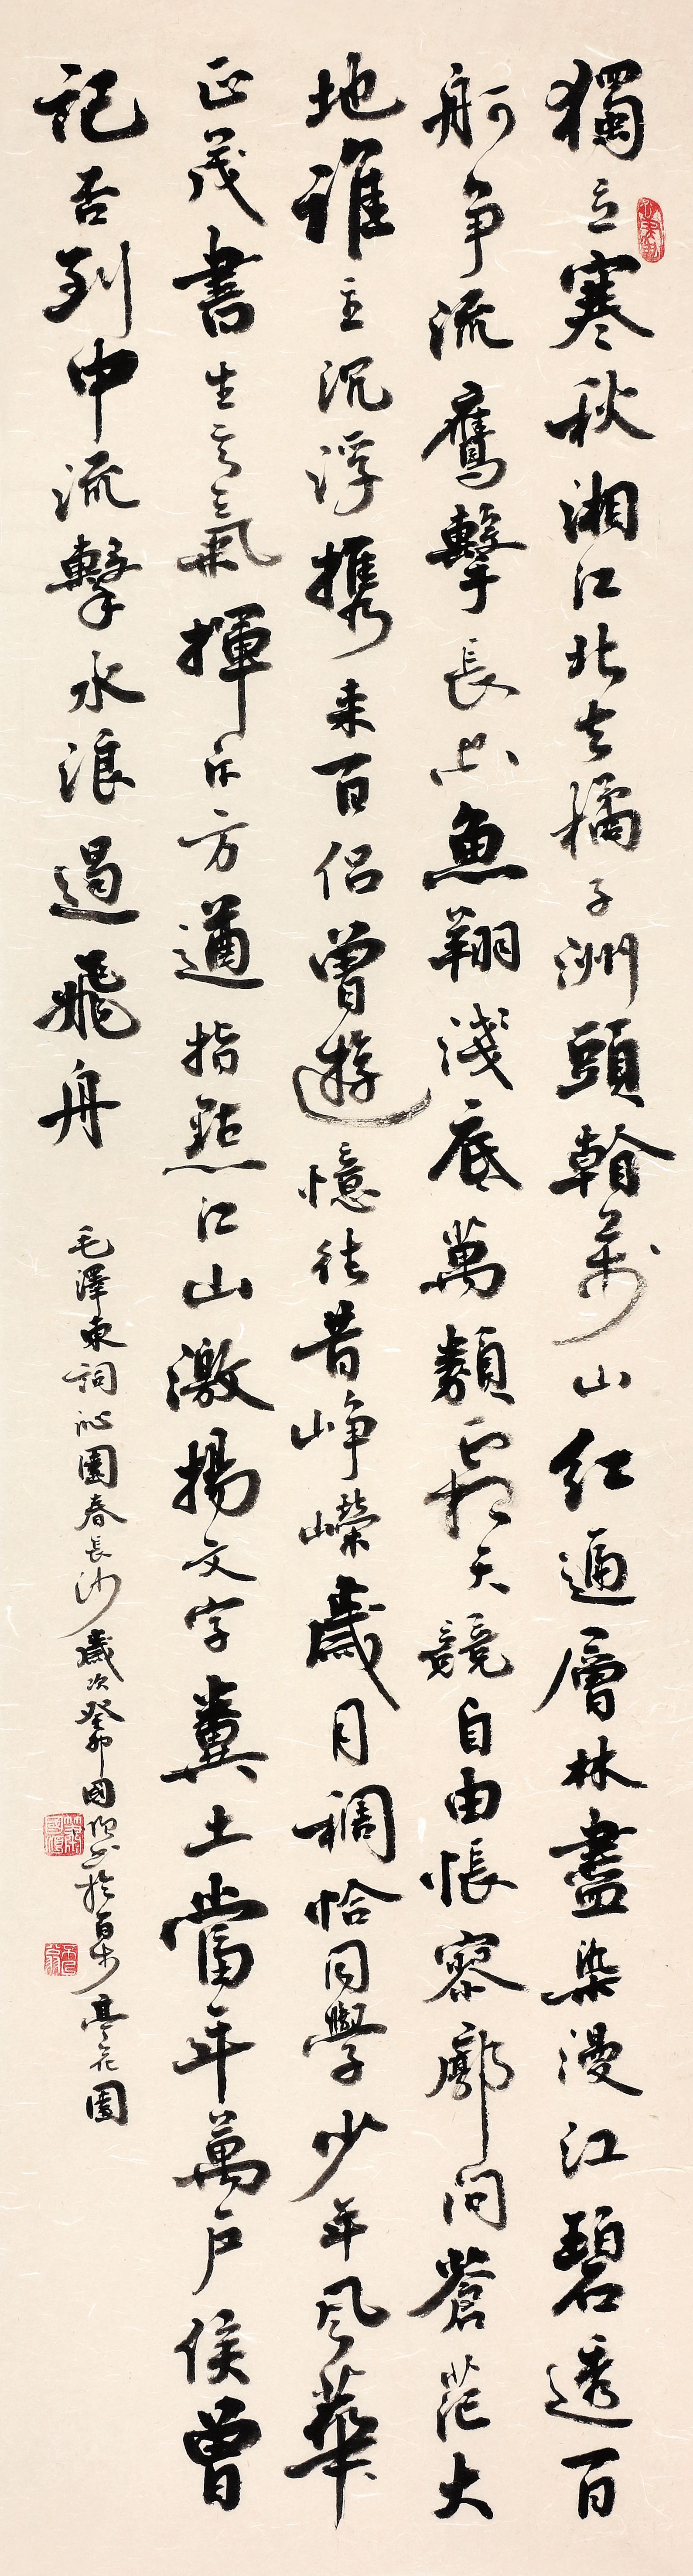 獨立寒秋湘江北去橘子洲頭看萬山紅遍層林盡染漫江碧透百
舸争流鷹擊長空魚翔淺底萬類霜天競自由悵寥廓問蒼茫大
地誰主沉浮携来百侣曾遊憶往昔崢嶸歲月稠恰同學少年風華
正茂書生意氣揮斥方遒指點江山激揚文字糞土當年萬户侯曾
記否到中流擊水浪遏飛舟
毛澤東詞沁園春長沙歲次癸卯國書於百步亭花園